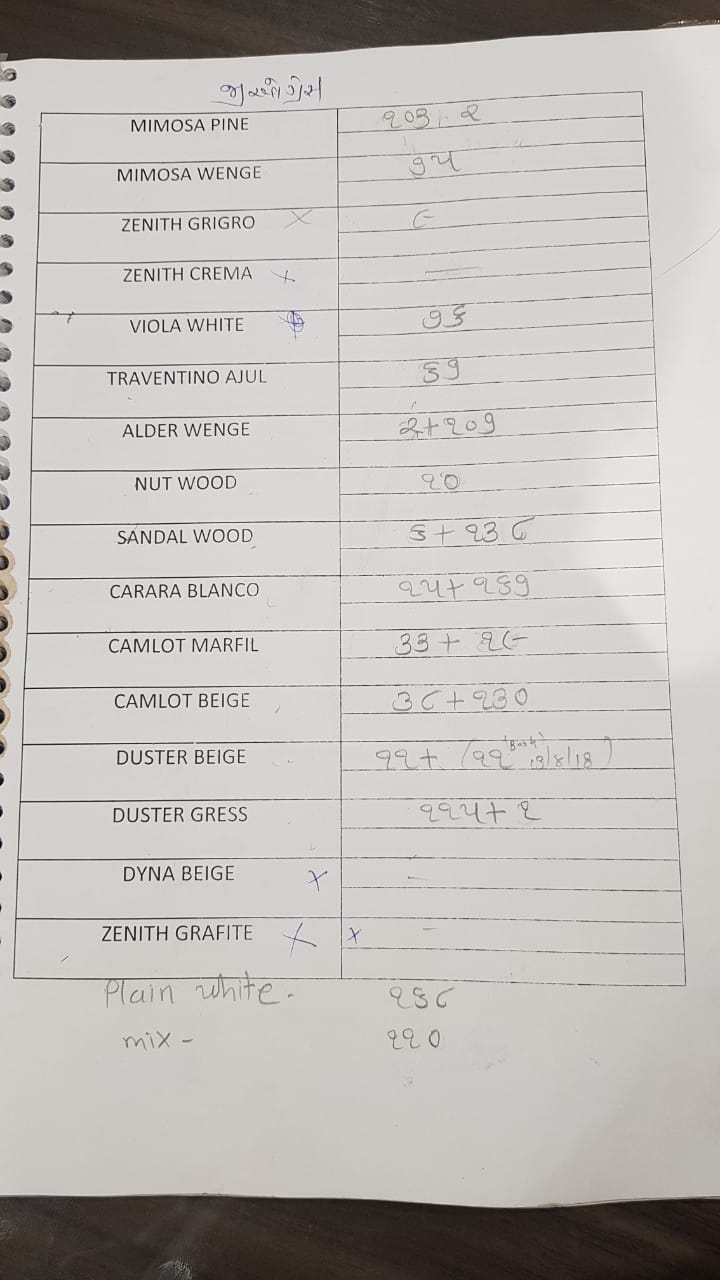 MIMOSA PINE ૧૦૩
MIMOSA WENGE ૭૫
ZENITH GRIGRO × ૯
ZENITH CREMA × —
VIOLA WHITE ૭૬
TRAVENTINO AJUL ૬૭
ALDER WENGE ૨+૧૦૭
NUT WOOD ૧૦
SANDAL WOOD ૬+૧૩૮
CARARA BLANCO ૧૫+૧૬૭
CAMLOT MARFIL ૩૩+૧૯
CAMLOT BEIGE ૩૮+૧૩૦
DUSTER BEIGE ૧૧+ (૧૧ 13/8/18)
DUSTER GRESS ૧૧૫+૧
DYNA BEIGE × -
ZENITH GRAFITE × × -
Plain white - ૧૬૮
mix - ૧૧૦